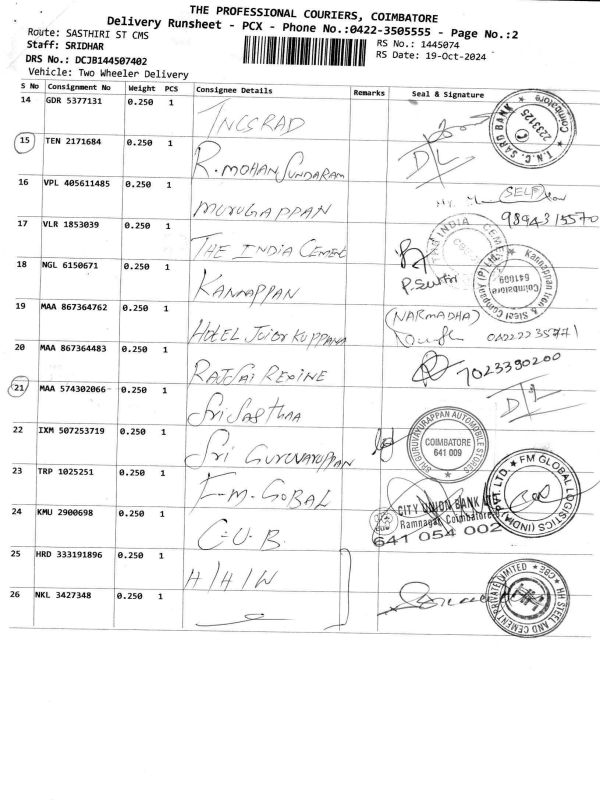 THE PROFESSIONAL COURIERS, COIMBATORE
Delivery Runsheet - PCX - Phone No.:0422-3505555 - Page No.:2
Route: SASTHIRI ST CMS
RS No.: 1445074
Staff: SRIDHAR
RS Date: 19-Oct-2024
DRS No.: DCJB144507402
Vehicle: Two Wheeler Delivery
S No Consignment No Weight PCS Consignee Details Remarks Seal & Signature
14 GDR 5377131 0.250 1 TNCSRAD
Coimbatore
I.N.C. SARD BANK
2233125
15 TEN 2171684 0.250 1 R. MOHAN SUNDARAM D/L
16 VPL 405611485 0.250 1 MURUGAPPAN
SELF
9894315570
17 VLR 1853039 0.250 1 THE INDIA CEMENT
INDIA CEMENT
18 NGL 6150671 0.250 1 KANNAPPAN
P. Suthi
Kannappan Iron & Steel Company (P) Ltd
Coimbatore
641009
19 MAA 867364762 0.250 1 HOTEL JUIOR KUPPANA
(NARMADHA)
04222235771
20 MAA 867364483 0.250 1 RAJSAI REXINE 7023390200
21 MAA 574302066 0.250 1 Sri Sasthaa D/L
22 IXM 507253719 0.250 1 Sri GURUVAYUPPAN
SRI GURUVAYURAPPAN AUTOMOBILE STORES
COIMBATORE
641 009
23 TRP 1025251 0.250 1 F.M. GOBAL
FM GLOBAL LOGISTICS (INDIA) PVT. LTD.
24 KMU 2900698 0.250 1 C.U.B.
CITY UNION BANK LTD
Ramnagar, Coimbatore-9
641 054 002
25 HRD 333191896 0.250 1 H/H/W
26 NKL 3427348 0.250 1
HH STEEL AND CEMENT PRIVATE LIMITED
CBE